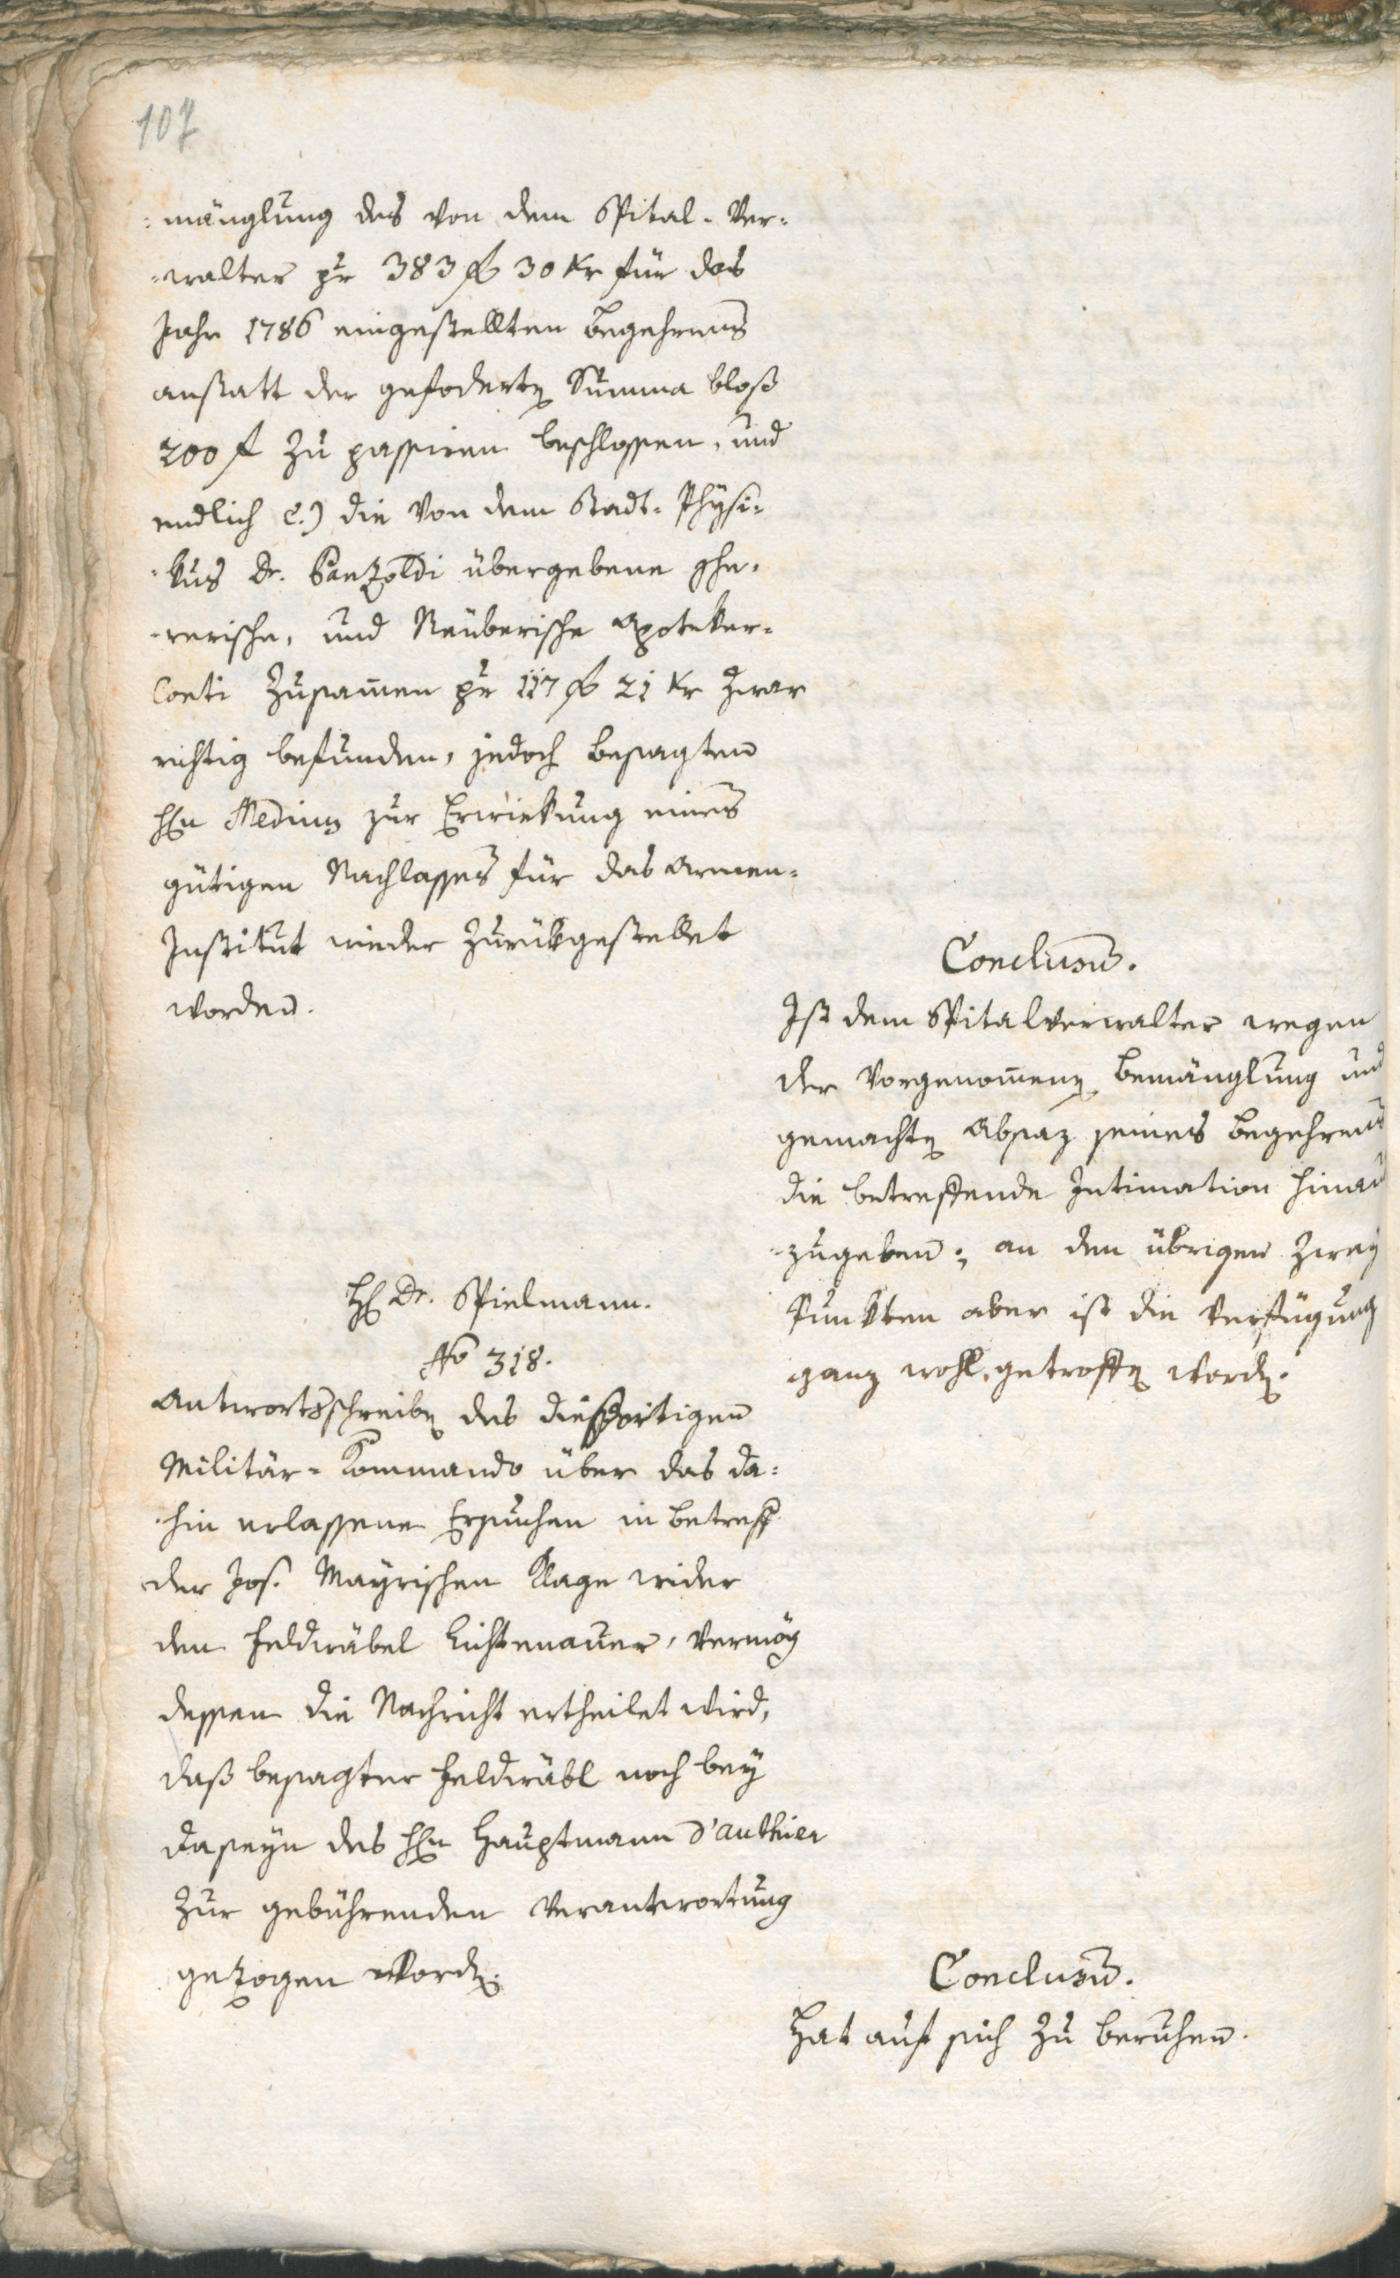 107
: mänglung des von dem Spital-Ver-
-walter pr 383 f 30 Kr für das
Jahr 1786 eingestellten Begehrens
anstatt der geforderten Summa bloß
200 f zu passiren beschlossen, und
endlich c.) die von dem Stadt-Physi-
-kus Dr. übergebene
-rerische, und Reüberische Apoteker-
Conti zusammen pr 117 f 21 Kr zwar
richtig befunden, jedoch besagten
Hn Medicus zur Erwirkung eines
gütigen Nachlasses für das Armen-
Institut wieder zurükgestellet
worden.
Conclusum.
Ist dem Spitalverwalter wegen
der vorgenommenen Bemänglung und
gemachten Absaz seines Begehrens
die betreffende Intimation hinaus
-zugeben; an den übrigen zwey
Punkten aber ist die Verfügung
ganz wohl getroffen worden.
H Dr. Spielmann.
No 318.
Antwortsschreiben des dießortigen
Militär-Kommando über das da-
-hin erlassene Ersuchen in Betreff
der Jos. Mayrischen Klage wider
den Feldwäbel Lichtenauer, vermög
dessen die Nachricht ertheilet wird,
daß besagter Feldwäbl noch bey
Daseyn des Hn Hauptmann d'Authier
zur gebührenden Verantwortung
gezogen worden.
Conclusum.
Hat auf sich zu beruhen.